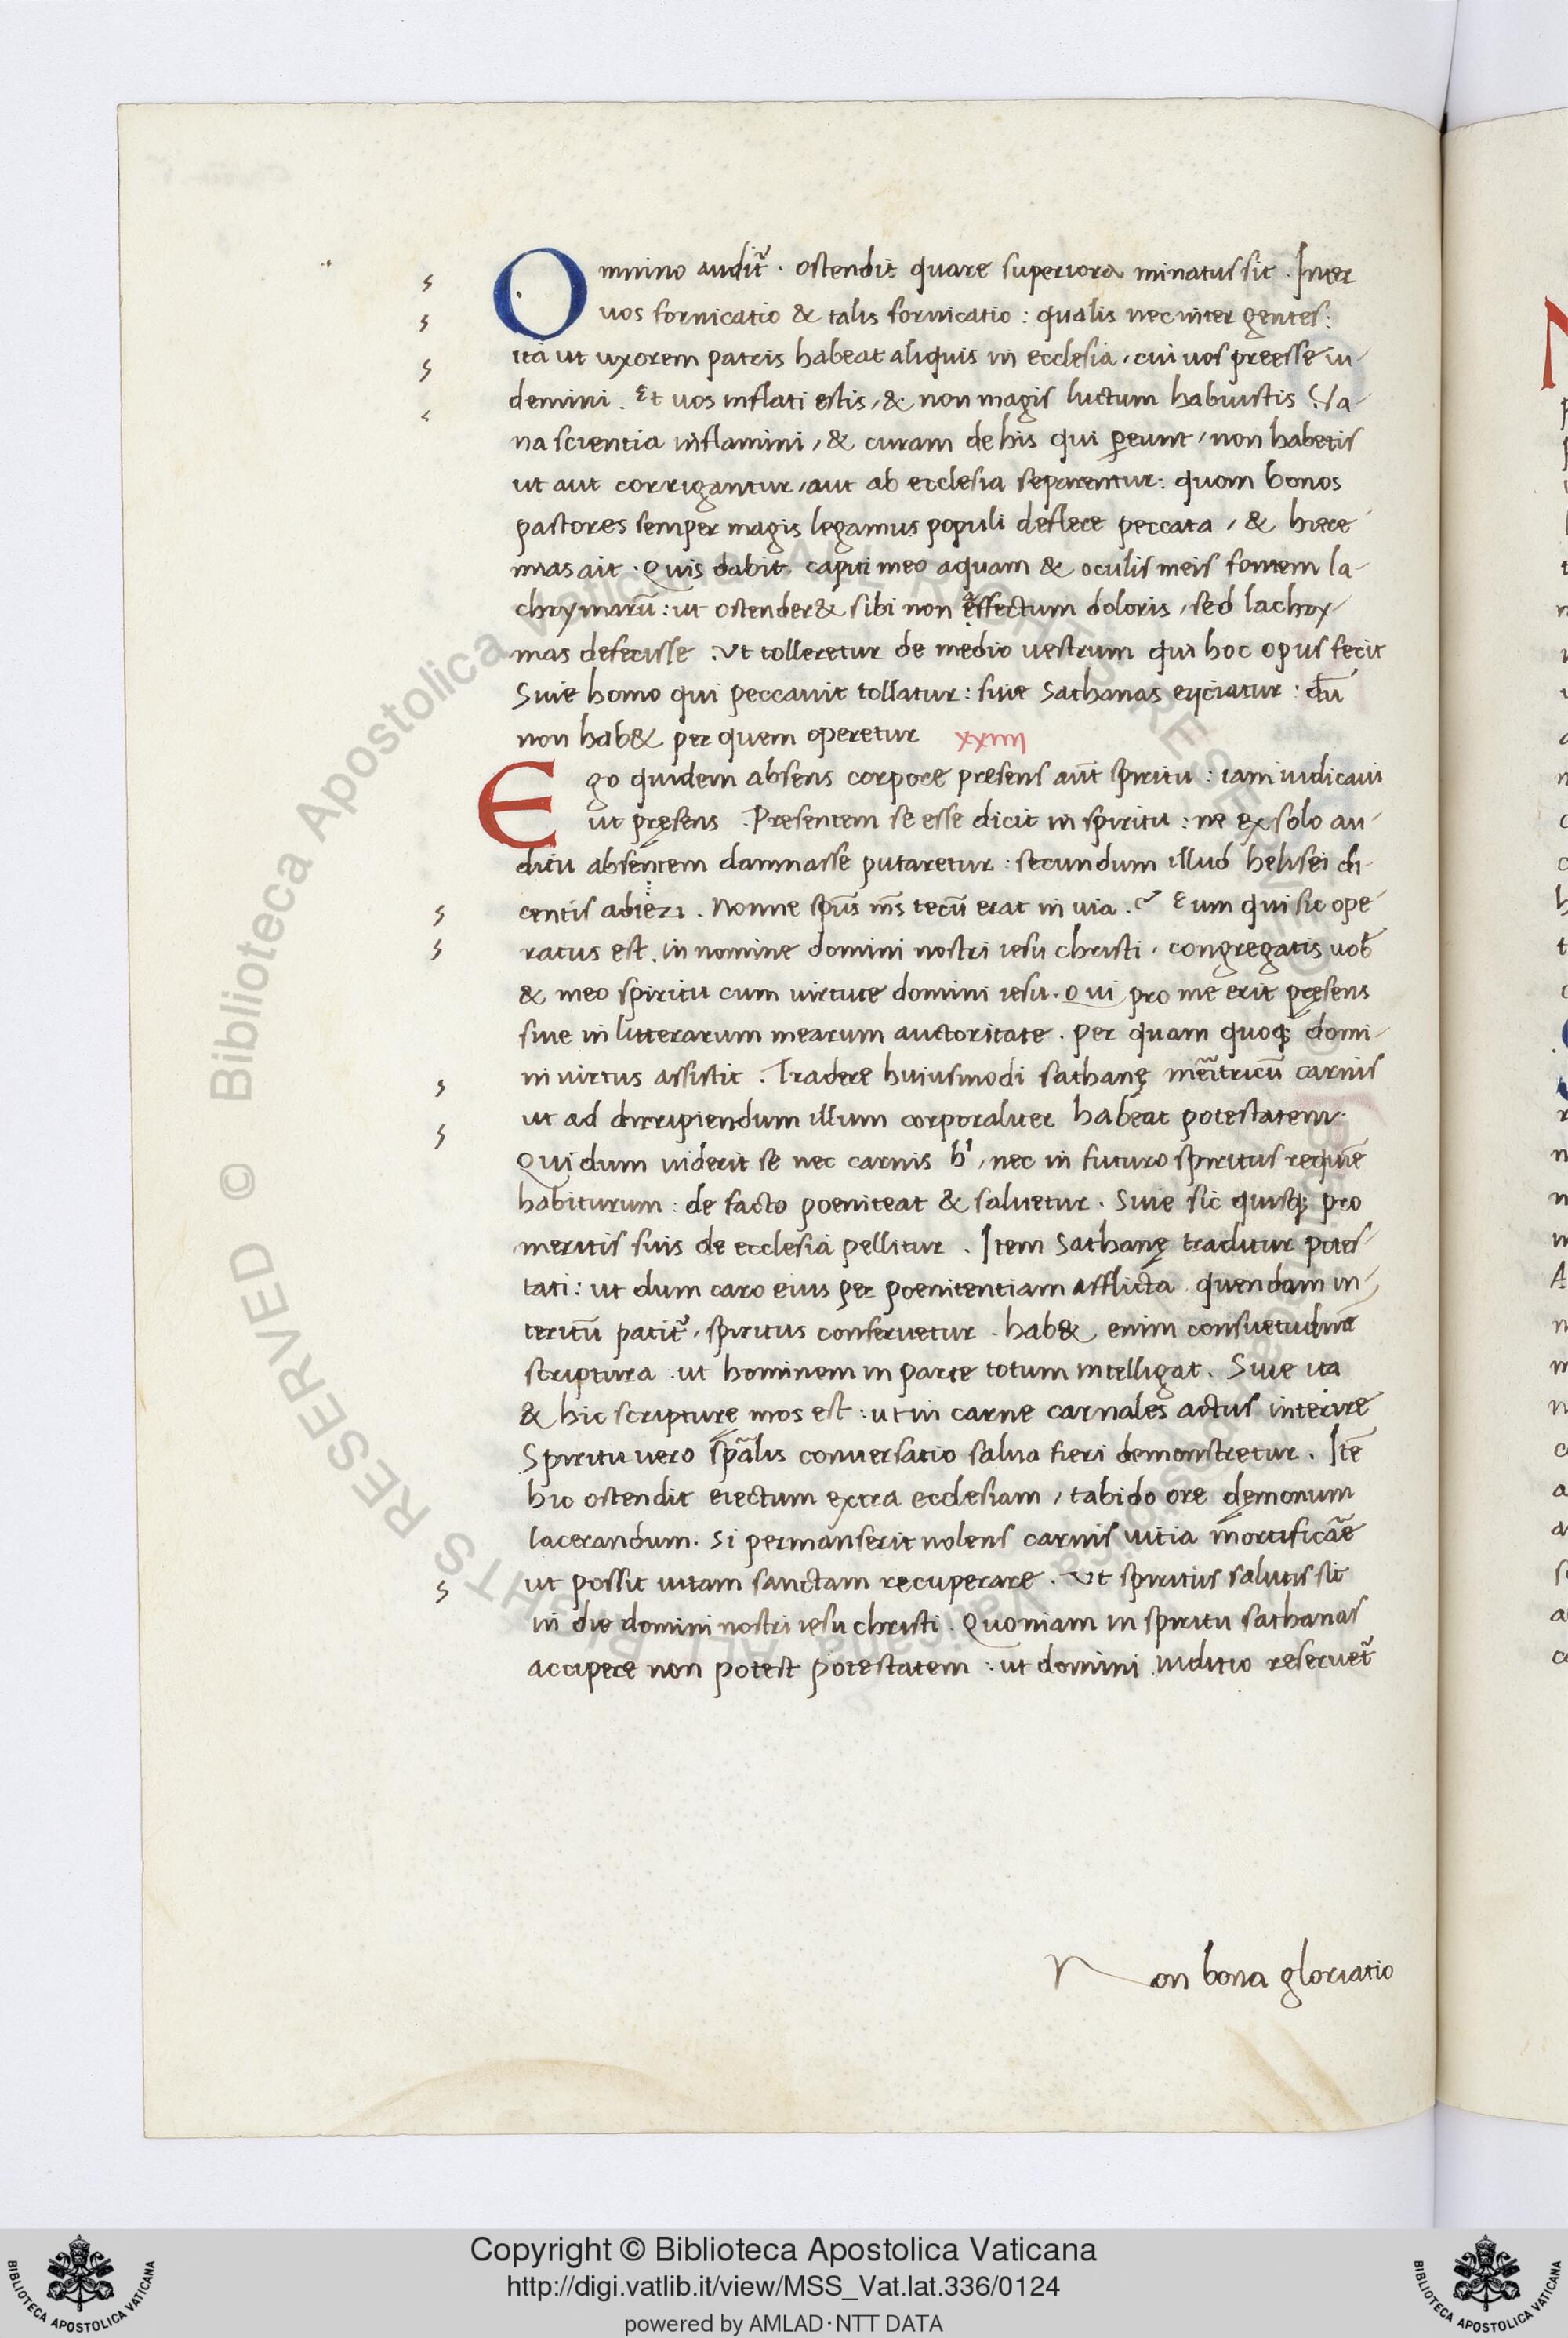 Omnino audit᷑ . ostendit quare superiora minatus sit . Inter
uos fornicatio & talis fornicatio : qualis nec inter gentes :
ita ut uxorem patris habeat aliquis in ecclesia , cui uos preesse ui-
demini . Et uos inflati estis , & non magis luctum habuistis Va-
na scientia inflamini , & curam de his qui ꝑeunt , non habetis
ut aut corrigantur , aut ab ecclesia separentur : quom bonos
pastores semper magis legamus populi deflere peccata , & hiere-
mias ait . Quis dabit capiti meo aquam & oculis meis fontem la-
chrymarū : ut ostender& sibi non effectum doloris , sed lachry-
mas defecisse . Ut tolleretur de medio uestrum qui hoc opus fecit
Siue homo qui peccauit tollatur : siue Sathanas eijciatur : dū
non hab& per quem operetur xxiiii
Ego quidem absens corpore presens aūt spiritu : iam iudicaui
ut pręsens . Presentem se esse dicit in spiritu : ne ex solo au-
ditu absentem damnasse putaretur : secundum illud helisei di-
centis abiezi . Nonne sp̄us m̄s tecū erat in uia . Eum qui sic ope-
ratus est . in nomine domini nostri iesu christi , congregatis uob̄
& meo spiritu cum uirtute domini iesu . Qui pro me erit pręsens
siue in litterarum mearum auctoritate . per quam quoqꝫ domi-
ni uirtus assistit . Tradere huiusmodi sathanę carnis
ut ad illum corporaliter habeat potestatem .
Qui dum uiderit se nec carnis , nec in futuro spiritus requiē
habiturum : de facto poeniteat & saluetur . Siue sic quisqꝫ pro
meritis suis de ecclesia pellitur . Item Sathanę traditur potes-
tati : ut dum caro eius per poenitentiam afflicta quendam in-
teritū patit᷑ , spiritus conseruetur . hab& enim consuetudinē
scriptura . ut hominem in parte totum intelligat . Siue ita
& hic scripturę mos est : ut in carne carnales actus interire
Spiritu uero sp̄alis conuersatio salua fieri demonstretur . Itē
hic ostendit eiectum extra ecclesiam , tabido ore dęmonum
lacerandum . Si permanserit nolens carnis uitia mortificāe
ut possit uitam sanctam recuperare . Ut spiritus saluus sit
in die domini nostri iesu christi . Quoniam in spiritu sathanas
accipere non potest potestatem : ut domini iuditio reseruet᷑
Non bona gloriatio
© Biblioteca Apostolica Vaticana ALL RIGHTS RESERVED
Copyright © Biblioteca Apostolica Vaticana
http://digi.vatlib.it/view/MSS_Vat.lat.336/0124
powered by AMLAD·NTT DATA
BIBLIOTECA APOSTOLICA VATICANA
BIBLIOTECA APOSTOLICA VATICANA